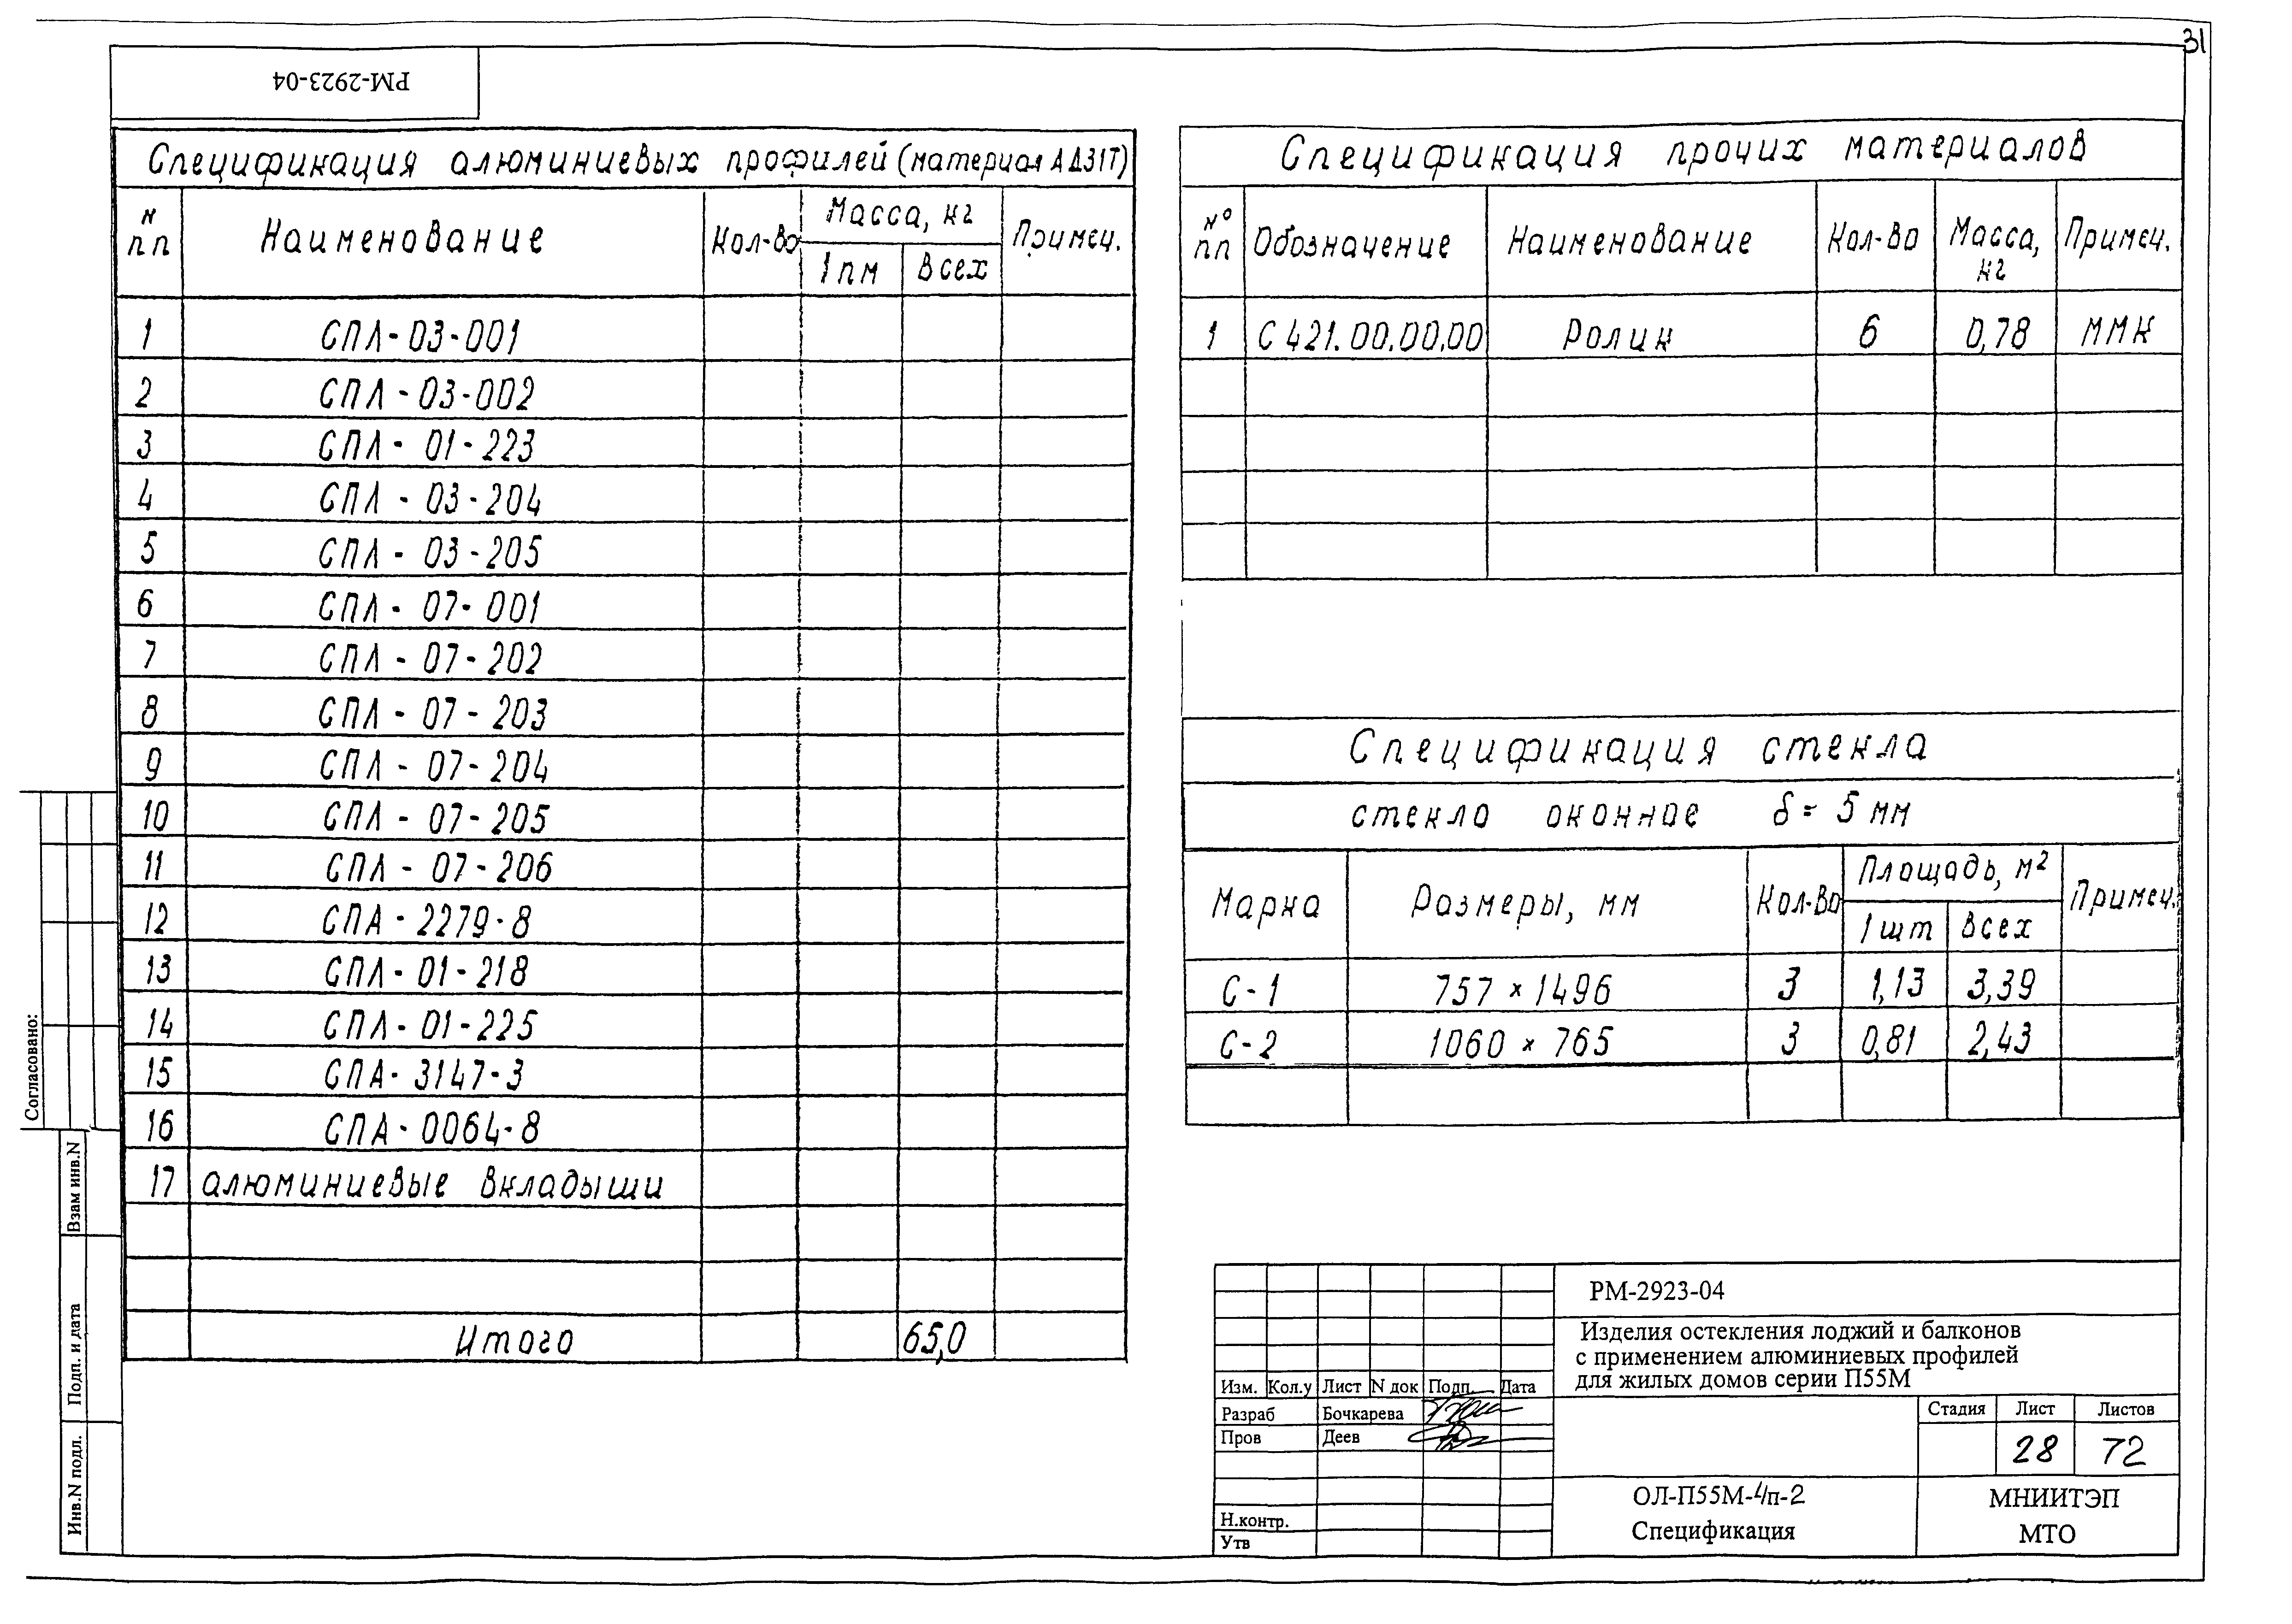 31
РМ-2923-04
Спецификация алюминиевых профилей (материал АД31Т)
N пп Наименование Кол-во Масса, кг Примеч.
1 пм Всех
1 СПЛ-03-001
2 СПЛ-03-002
3 СПЛ-01-223
4 СПЛ-03-204
5 СПЛ-03-205
6 СПЛ-07-001
7 СПЛ-07-202
8 СПЛ-07-203
9 СПЛ-07-204
10 СПЛ-07-205
11 СПЛ-07-206
12 СПА-2279-8
13 СПЛ-01-218
14 СПЛ-01-225
15 СПА-3147-3
16 СПА-0064-8
17 алюминиевые вкладыши
Итого 65,0
Спецификация прочих материалов
№ пп Обозначение Наименование Кол-во Масса, кг Примеч.
1 С421.00.00.00 Ролик 6 0,78 ММК
Спецификация стекла
стекло оконное δ = 5 мм
Марка Размеры, мм Кол-во Площадь, м² Примеч.
1 шт Всех
С-1 757 × 1496 3 1,13 3,39
С-2 1060 × 765 3 0,81 2,43
Согласовано:
Взам инв.N
Подп. и дата
Инв.N подл.
РМ-2923-04
Изделия остекления лоджий и балконов
с применением алюминиевых профилей
для жилых домов серии П55М
Изм. Кол.у Лист N док Подп. Дата
Разраб Бочкарева
Пров Деев
Н.контр.
Утв
Стадия Лист Листов
28 72
ОЛ-П55М-4/п-2
Спецификация
МНИИТЭП
МТО